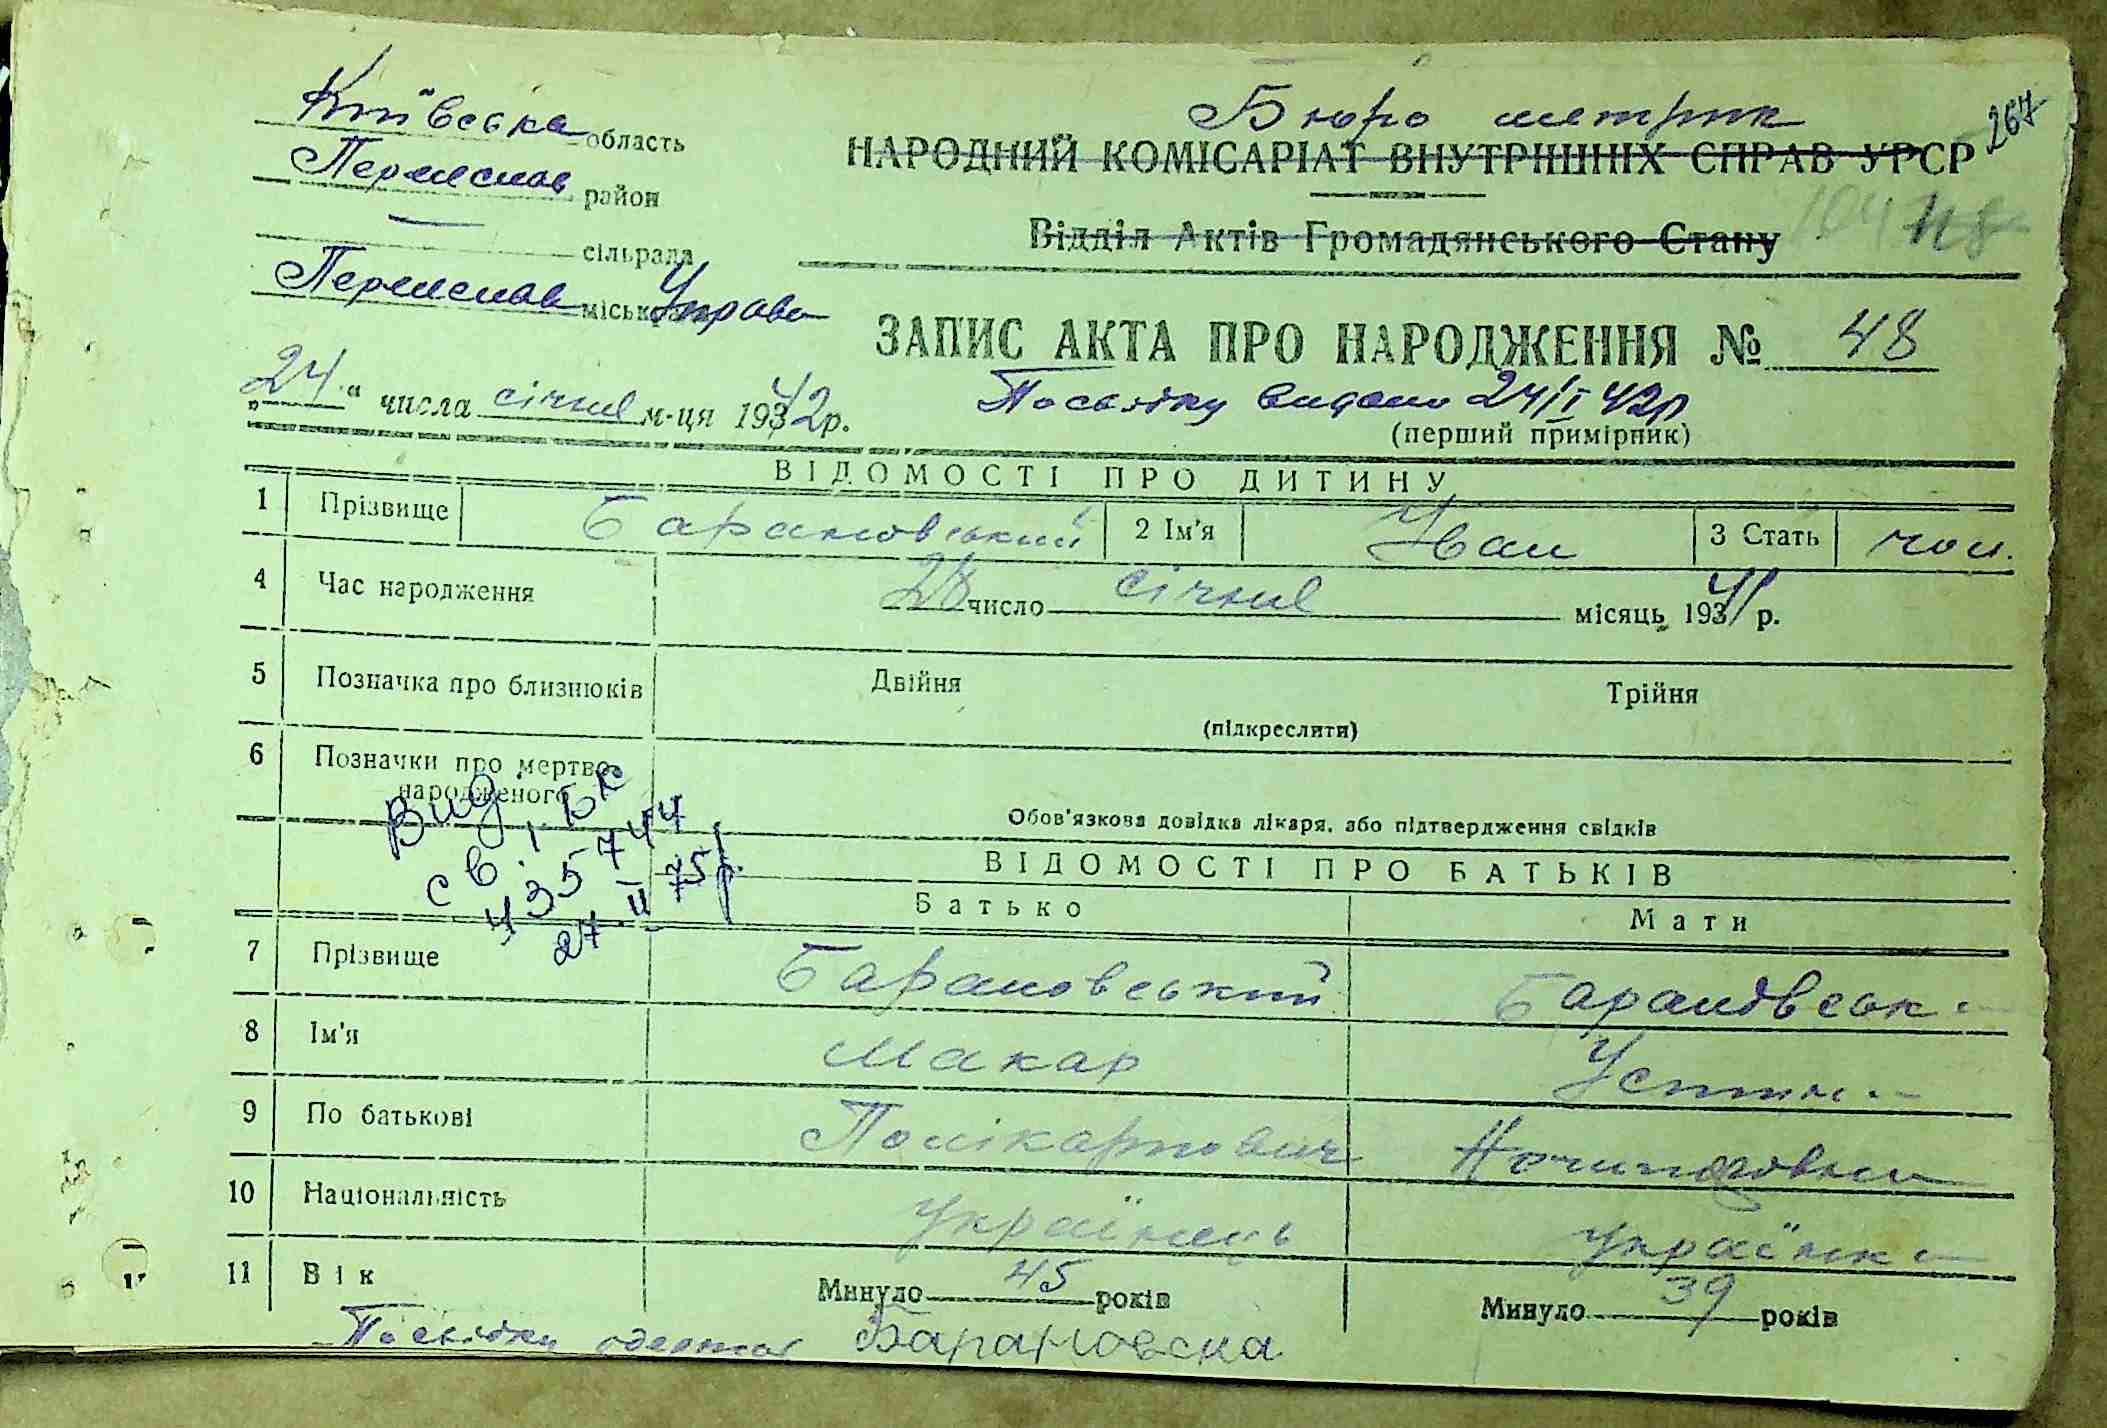 Київська область
Бюро метрик
267
НАРОДНИЙ КОМІСАРІАТ ВНУТРІШНІХ СПРАВ УРСР
Переяслав район
Відділ Актів Громадянського Стану
сільрада
Переяслав міськ Управа
ЗАПИС АКТА ПРО НАРОДЖЕННЯ № 48
„24“ числа січня м-ця 1942р.
Посвідку видано 24/I 42р
(перший примірник)
ВІДОМОСТІ ПРО ДИТИНУ
1 Прізвище Барановський 2 Ім'я Іван 3 Стать чол.
4 Час народження 28 число січня місяць 1941 р.
5 Позначка про близнюків Двійня Трійня
(підкреслити)
6 Позначки про мертво-
народженого
Обов'язкова довідка лікаря, або підтвердження свідків
Вид.
св. І-БК
435744
27 II 75р.
ВІДОМОСТІ ПРО БАТЬКІВ
Батько Мати
7 Прізвище Барановський Барановська
8 Ім'я Макар Устина
9 По батькові Полікарпович
10 Національність українець українка
11 Вік Минуло 45 років Минуло 39 років
Посвідку одержал Барановска